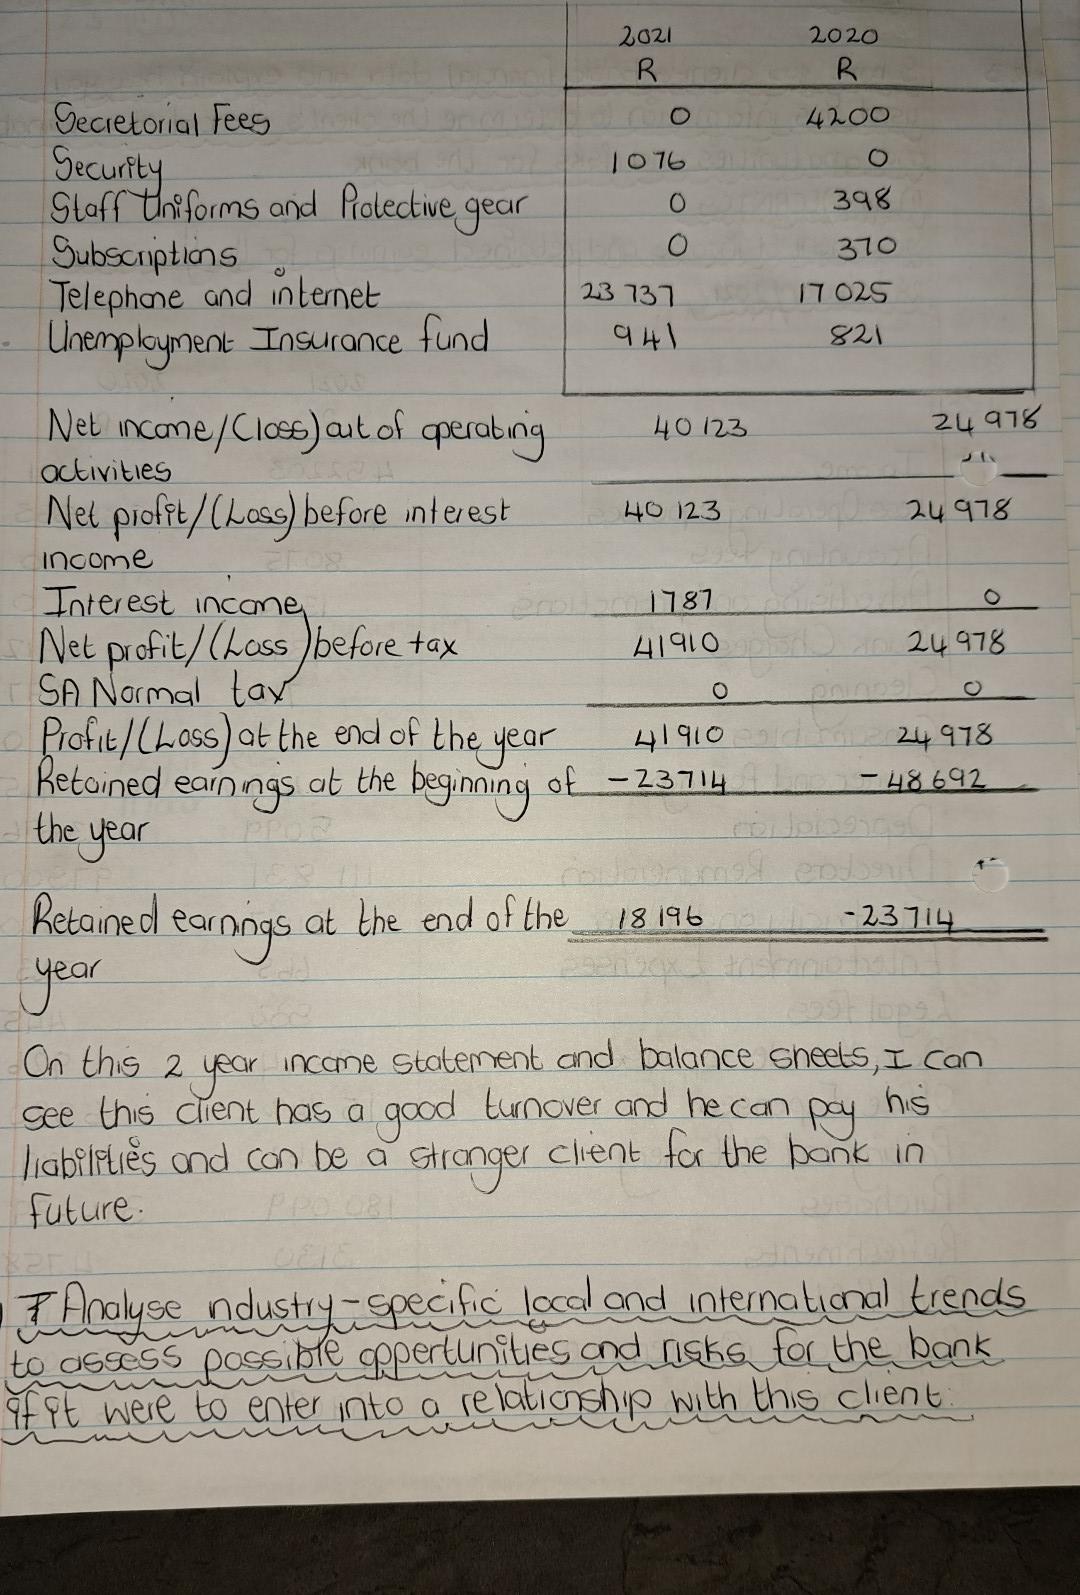 2021 2020
R R
Secretorial Fees 0 4200
Security 1076 0
Staff Uniforms and Protective gear 0 398
Subscriptions 0 370
Telephone and internet 23 737 17 025
Unemployment Insurance fund 941 821
Net income/(loss) out of operating 40 123 24 978
activities
Net profit/(Loss) before interest 40 123 24 978
income
Interest income 1787 0
Net profit/(Loss) before tax 41910 24 978
SA Normal tax 0 0
Profit/(Loss) at the end of the year 41910 24 978
Retained earnings at the beginning of -23714 -48692
the year
Retained earnings at the end of the 18 196 -23714
year
On this 2 year income statement and balance sheets, I can
see this client has a good turnover and he can pay his
liabilities and can be a stronger client for the bank in
future.
7 Analyse industry-specific local and international trends
to assess possible oppertunities and risks for the bank
if it were to enter into a relationship with this client.